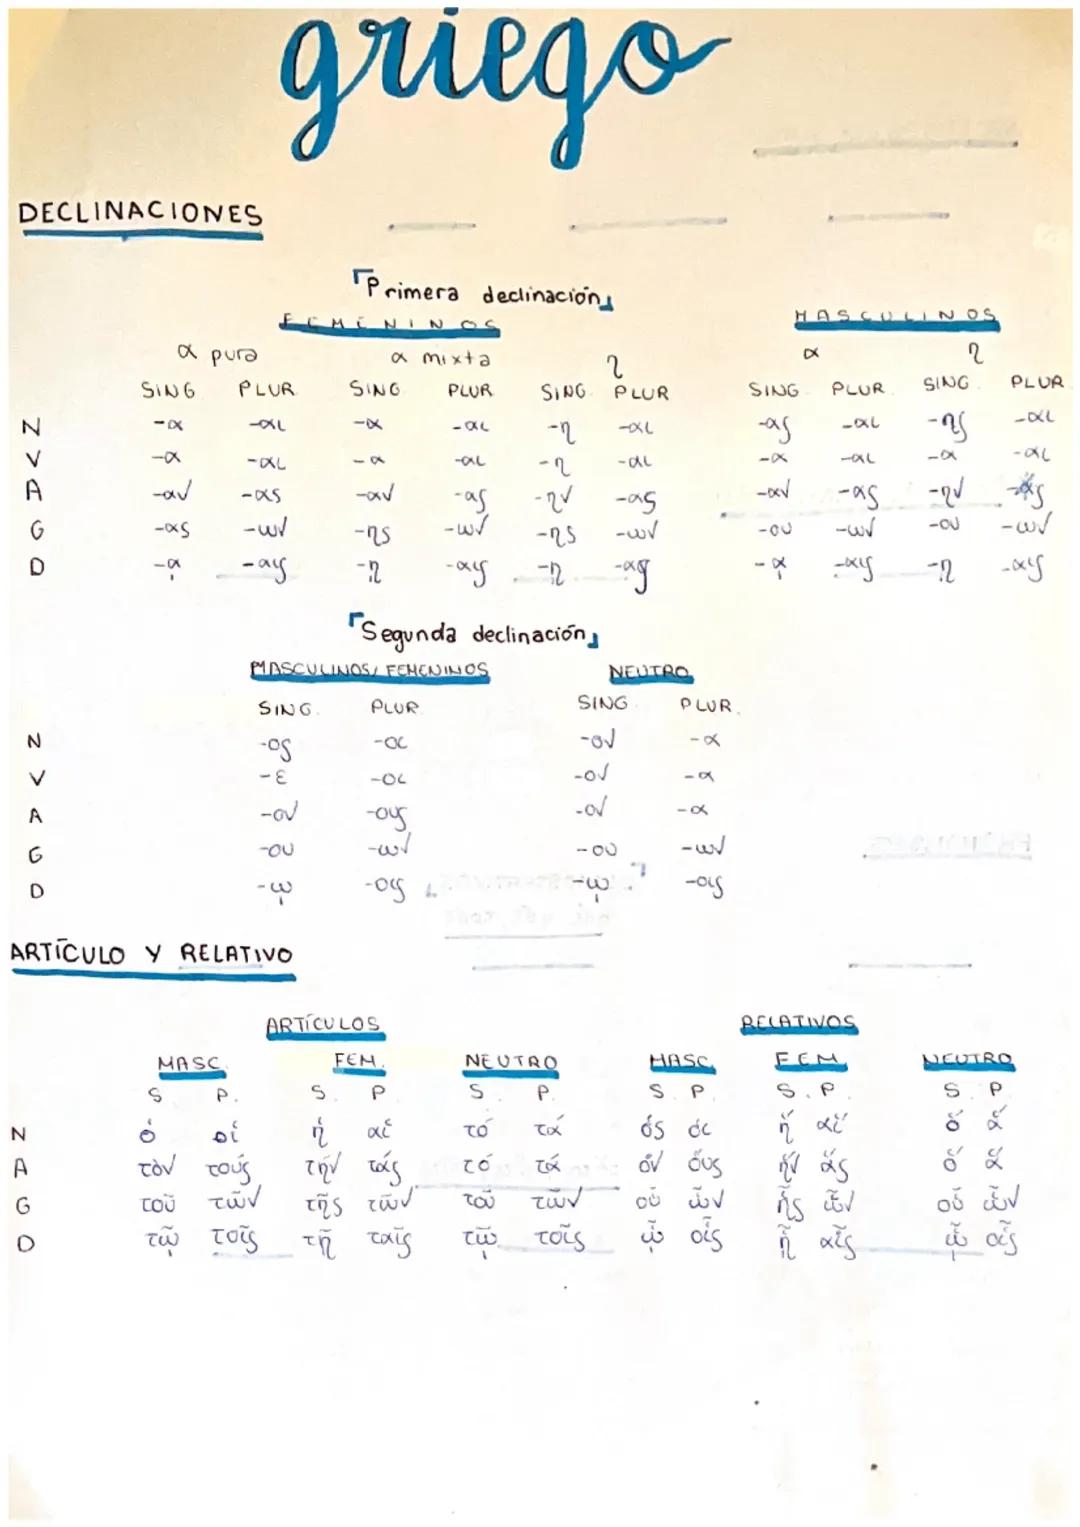 griego
DECLINACIONES
Primera declinación
FEMENINOS MASCULINOS
α pura α mixta η α η
SING PLUR. SING. PLUR SING. PLUR SING. PLUR. SING. PLUR
N -α -αι -α -αι -η -αι -ας -αι -ης -αι
V -α -αι -α -αι -η -αι -α -αι -α -αι
A -αν -ας -αν -ας -ην -ας -αν -ας -ην -ας
G -ας -ων -ης -ων -ης -ων -ου -ων -ου -ων
D -ᾳ -αις -ῃ -αις -ῃ -αις -ᾳ -αις -ῃ -αις
Segunda declinación
MASCULINOS/FEMENINOS NEUTRO
SING. PLUR. SING. PLUR.
N -ος -οι -ον -α
V -ε -οι -ον -α
A -ον -ους -ον -α
G -ου -ων -ου -ων
D -ῳ -οις -ῳ -οις
ARTÍCULO Y RELATIVO
ARTÍCULOS RELATIVOS
MASC. FEM. NEUTRO MASC. FEM NEUTRO
S. P. S. P. S. P. S. P. S. P. S. P.
N ὁ οἱ ἡ αἱ τό τά ὅς οἵ ἥ αἵ ὅ ἅ
A τὸν τούς τήν τάς τό τά ὅν οὕς ἥν ἅς ὅ ἅ
G τοῦ τῶν τῆς τῶν τοῦ τῶν οὗ ὧν ἧς ὧν οὗ ὧν
D τῷ τοῖς τῇ ταῖς τῷ τοῖς ᾧ οἷς ᾗ αἷς ᾧ οἷς